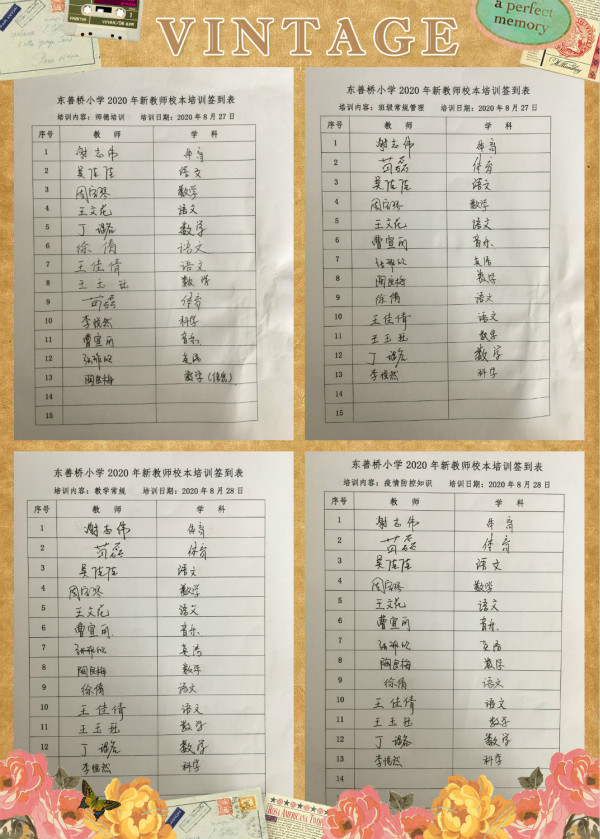 VINTAGE
a perfect
memory
东善桥小学 2020 年新教师校本培训签到表
培训内容：师德培训 培训日期：2020 年 8 月 27 日
序号 教 师 学 科
1 谢志伟 体育
2 吴佳佳 语文
3 数学
4 王文花 语文
5 丁 数学
6 徐倩 语文
7 王佳倩 语文
8 王玉 数学
9 苟磊 体育
10 李悦然 科学
11 曹宜前 音乐
12 英语
13 陶良梅 数学（信息）
14
15
东善桥小学 2020 年新教师校本培训签到表
培训内容：班级常规管理 培训日期：2020 年 8 月 27 日
序号 教 师 学 科
1 谢志伟 体育
2 苟磊 体育
3 吴佳佳 语文
4 数学
5 王文花 语文
6 曹宜前 音乐
7 英语
8 陶良梅 数学
9 徐倩 语文
10 王佳倩 语文
11 王玉 数学
12 丁 数学
13 李悦然 科学
14
15
东善桥小学 2020 年新教师校本培训签到表
培训内容：教学常规 培训日期：2020 年 8 月 28 日
序号 教 师 学 科
1 谢志伟 体育
2 苟磊 体育
3 吴佳佳 语文
4 数学
5 王文花 语文
6 曹宜前 音乐
7 英语
8 陶良梅 数学
9 徐倩 语文
10 王佳倩 语文
11 王玉 数学
12 丁 数学
13 李悦然 科学
东善桥小学 2020 年新教师校本培训签到表
培训内容：疫情防控知识 培训日期：2020 年 8 月 28 日
序号 教 师 学 科
1 谢志伟 体育
2 苟磊 体育
3 吴佳佳 语文
4 数学
5 王文花 语文
6 曹宜前 音乐
7 英语
8 陶良梅 数学
9 徐倩 语文
10 王佳倩 语文
11 王玉 数学
12 丁 数学
13 李悦然 科学
14